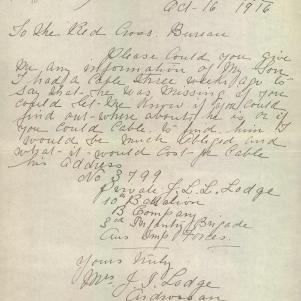 Oct-16 1916
To the Red Cross Bureau
Please Could you give
Me any information of My Son
I had a Cable three weeks ago to
Say that he was Missing if you
Could let me Know if you Could
find out where about he is or if
you Could Cable to find him I
would be Much Obliged and
what it would Cost to Cable
his Address
No 3799
Private J. L. L. Lodge
10th Battalion
B Company
3rd Infantry Brigade
Aus Imp Forces.
Yours truly
Mrs J. J. Lodge
Ardrossan